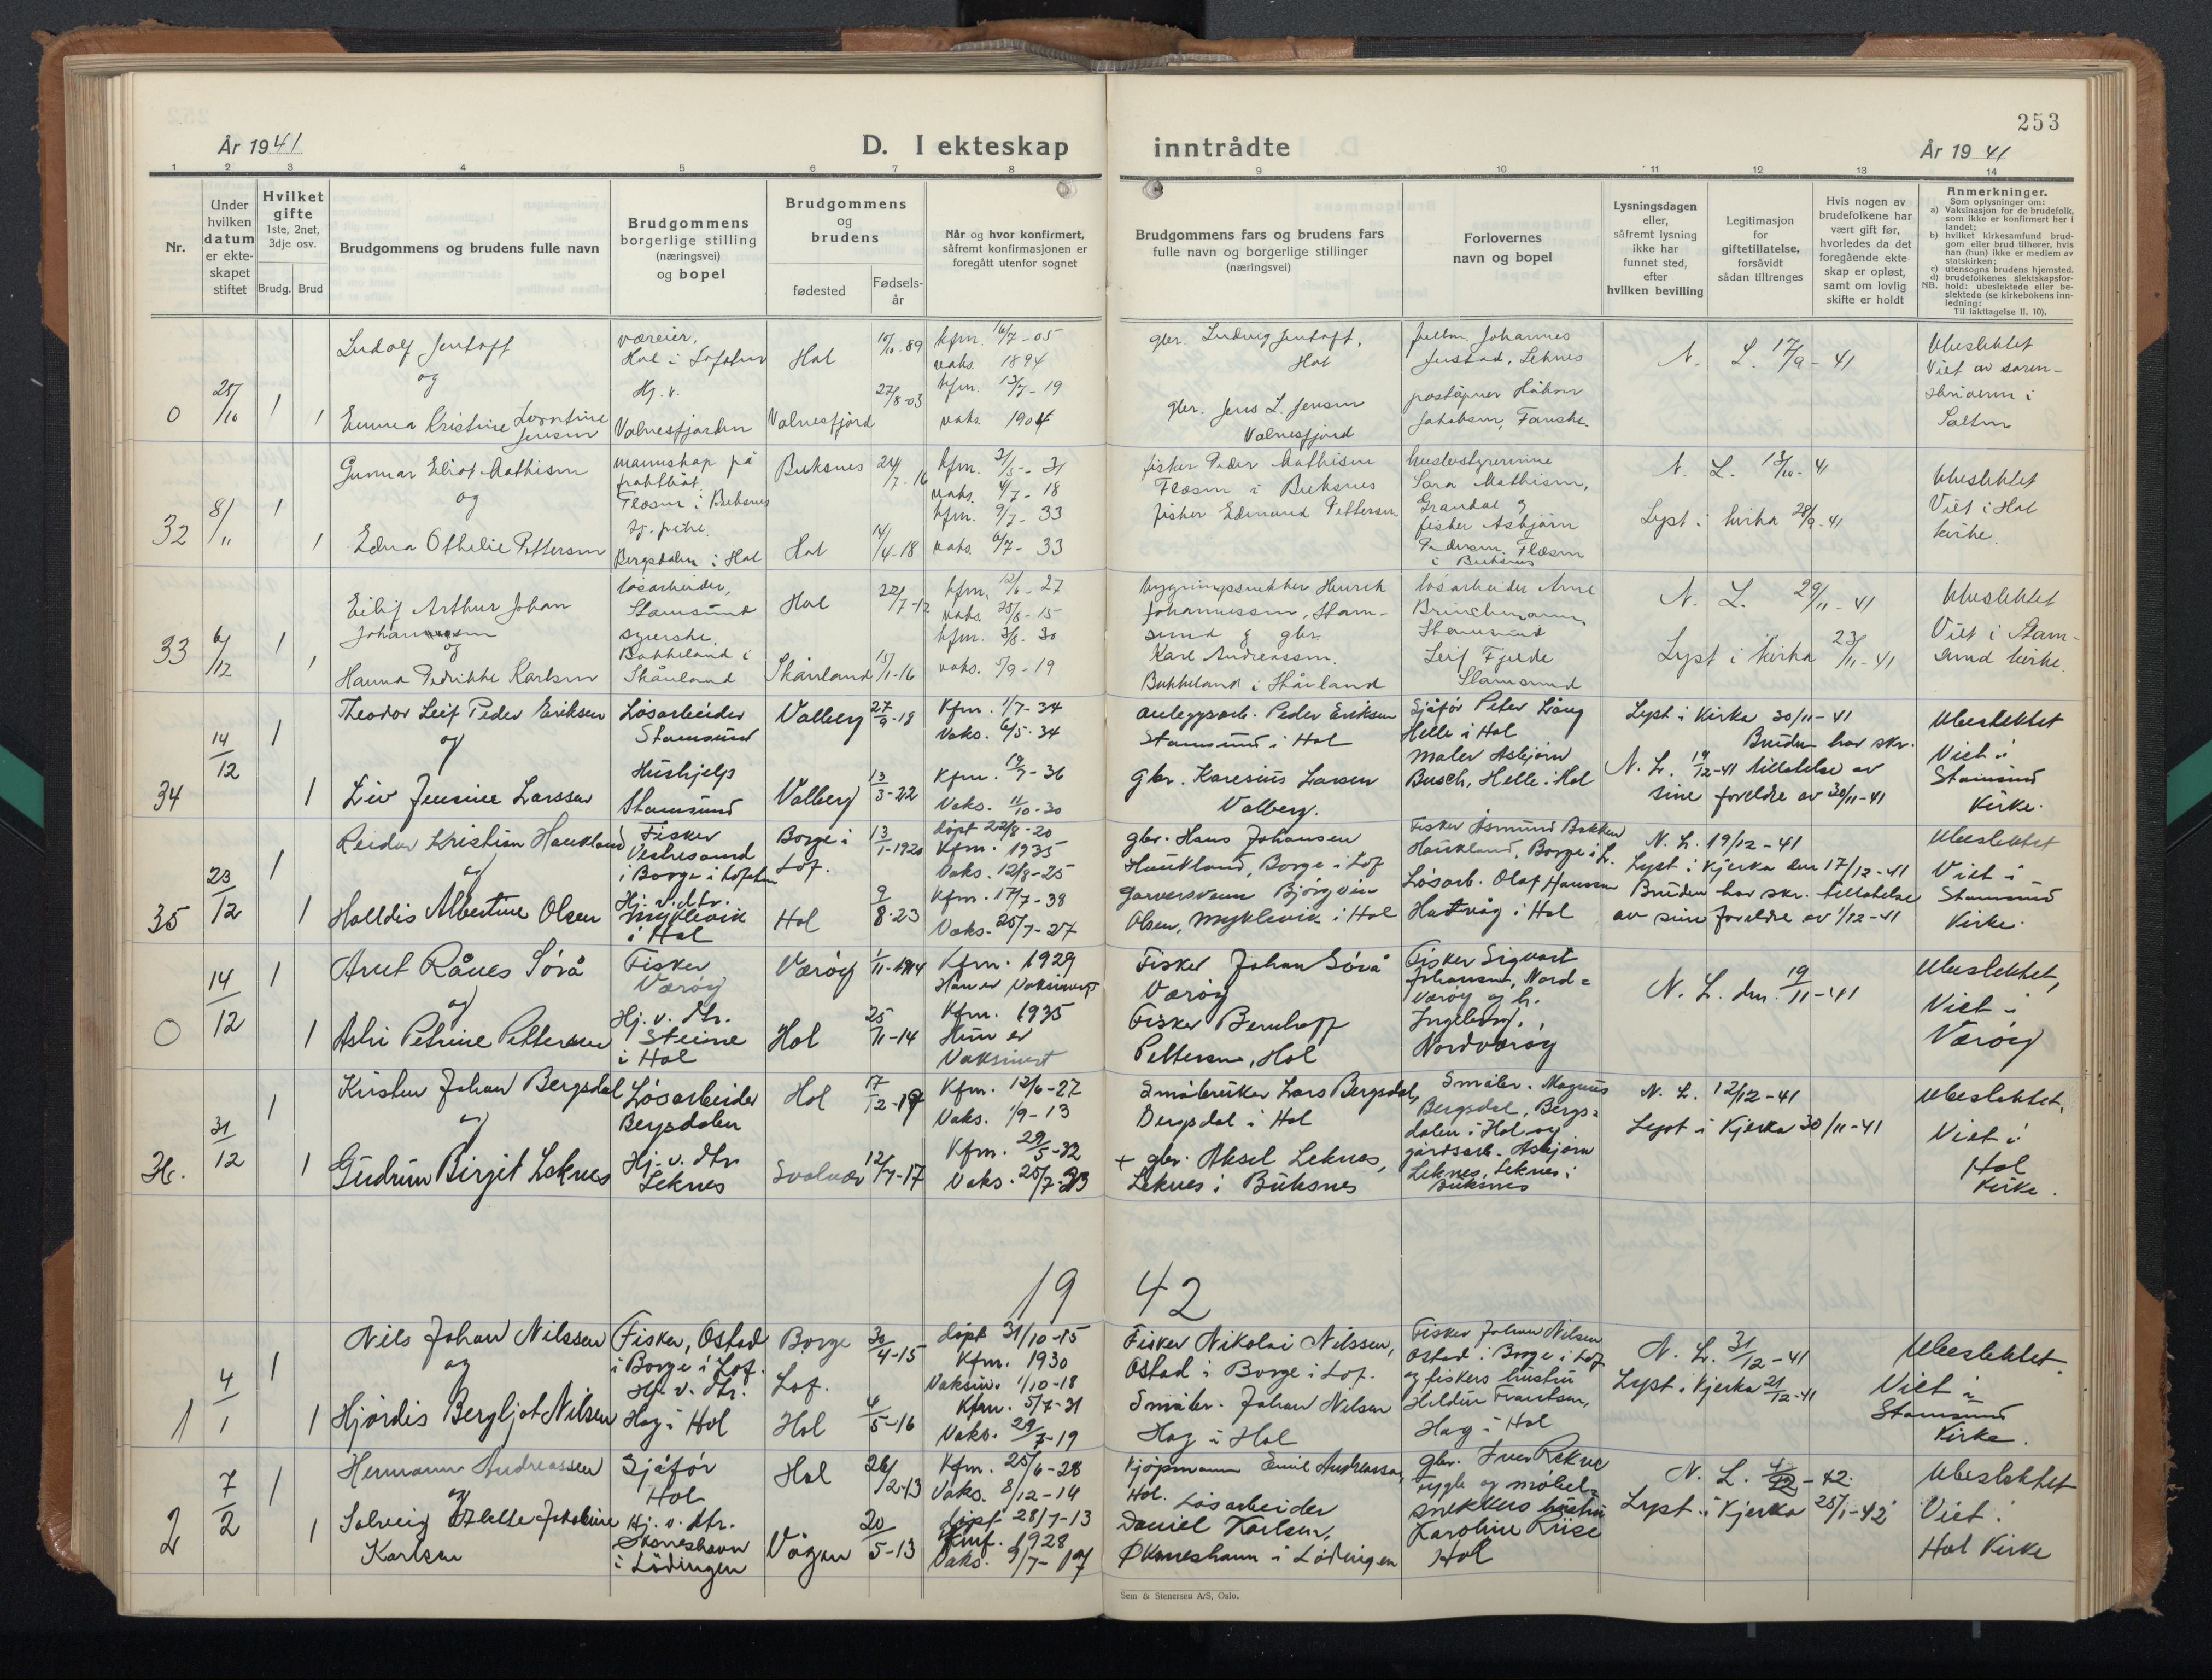 253
År 1941
D. I ekteskap inntrådte
År 1941
1 2 3 4 5 6 7 8 9 10 11 12 13 14
Nr.
Under hvilken datum er ekte-skapet stiftet
Hvilket gifte 1ste, 2net, 3dje osv.
Brudg. Brud
Brudgommens og brudens fulle navn
Brudgommens borgerlige stilling (næringsvei) og bopel
Brudgommens og brudens
fødested
Fødsels-år
Når og hvor konfirmert, såfremt konfirmasjonen er foregått utenfor sognet
Brudgommens fars og brudens fars fulle navn og borgerlige stillinger (næringsvei)
Forlovernes navn og bopel
Lysningsdagen eller, såfremt lysning ikke har funnet sted, efter hvilken bevilling
Legitimasjon for giftetillatelse, forsåvidt sådan tiltrenges
Hvis nogen av brudefolkene har vært gift før, hvorledes da det foregående ekte-skap er opløst, samt om lovlig skifte er holdt
Anmerkninger.
Som oplysninger om:
a) Vaksinasjon for de brudefolk, som ikke er konfirmert her i landet;
b) hvilket kirkesamfund brud-gom eller brud tilhører, hvis han (hun) ikke er medlem av statskirken;
c) utensogns brudens hjemsted.
d) brudefolkenes slektskapsfor-hold: ubeslektede eller be-slektede (se kirkebokens inn-ledning:
NB.
Til iakttagelse II. 10).
0
25/10
1
1
Ludolf Jentoft
og
Emma Kristine Leontine
Jensen
væreier,
Hol i Lofoten
Hj. v.
Valnesfjorden
Hol
Valnesfjord
10/10-89
27/8-03
kfm. 16/7-05
vaks. 1894
kfm. 13/7-19
vaks. 1904
gbr. Ludvig Jentoft,
Hol
gbr. Jens L. Jensen
Valnesfjord
Johannes
Justad, Leknes
poståpner Håkon
Jakobsen, Fauske.
N. L. 17/9-41
Ubeslektet
Viet av soren-
skriveren i
Salten
32
8/11
1
1
Gunnar Eliot Mathisen
og
Edna Othelie Pettersen
mannskap på
fraktbåt
Flæsen i Buksnes
Hj. pike.
Bergsdalen i Hol
Buksnes
Hol
24/7-16
14/4-18
kfm. 31/5-31
vaks. 4/7-18
kfm. 9/7-33
vaks. 6/7-33
fisker Peder Mathisen
Flæsen i Buksnes
fisker Edmund Pettersen
husbestyrerinne
Sara Mathisen,
Grandal og
fisker Asbjørn
Pedersen Flæsen
i Buksnes
N. L. 13/10-41
Lyst i kirka 28/9-41
Ubeslektet
Viet i Hol
kirke.
33
6/12
1
1
Eilif Arthur Johan
Johannessen
og
Hanna Fredrikke Karlsen
løsarbeider,
Stamsund
syerske.
Bakkeland i
Skånland
Hol
Skånland
22/7-12
15/1-16
kfm. 12/6-27
vaks. 25/8-15
kfm. 3/8-30
vaks. 5/9-19
bygningssnekker Henrik
Johannessen, Stam-
sund & gbr.
Karl Andreassen.
Bakkeland i Skånland
løsarbeider Arne
Brinchmann,
Stamsund
Leif Fjelde
Stamsund
N. L. 29/11-41
Lyst i kirka 23/11-41
Ubeslektet
Viet i Stam-
sund kirke.
34
14/12
1
1
Theodor Leif Peder Eriksen
og
Liv Jensine Larssen
Løsarbeider
Stamsund
Hushjelp
Stamsund
Valberg
Valberg
27/9-18
13/3-22
Kfm. 1/7-34
Vaks. 6/5-34
Kfm. 19/7-36
Vaks. 11/10-30
anleggsarb. Peder Eriksen
Stamsund i Hol
gbr. Karesius Larsen
Valberg.
Sjåfør Peter Lång
Helle i Hol
Maler Asbjørn
Busch, Helle i Hol
Lyst i Kirka 30/11-41
Bruden har skr.
N. L. 19/12-41 tillatelse av
sine foreldre av 30/11-41
Ubeslektet
Viet i
Stamsund
Kirke.
35
23/12
1
1
Reidar Kristian Haukland
og
Halldis Albertine Olsen
Fisker
Vestresand
i Borge i Lofoten
Hj. v. dtr.
Myklevik
i Hol
Borge i
Lof.
Hol
13/1-1920
9/8-23
Døpt 22/8-20
Kfm. 1935
Vaks. 12/8-25
Kfm. 17/7-38
Vaks. 25/7-27
gbr. Hans Johansen
Haukland, Borge i Lof
garversvenn Bjørgvin
Olsen, Myklevik i Hol
Fisker Asmund Bakken
Haukland, Borge i L.
Løsarb. Olaf Hanssen
Hattvåg i Hol
N. L. 19/12-41
Lyst i Kjerka den 17/12-41
Bruden har skr. tillatelse
av sine foreldre av 1/12-41
Ubeslektet
Viet i
Stamsund
Kirke.
0
14/12
1
1
Arnt Rånes Sørå
og
Astri Petrine Pettersen
Fisker
Værøy
Hj. v. dtr.
Steine
i Hol
Værøy
Hol
1/11-1914
25/11-14
Kfm. 1929
Han er vaksinert
Kfm. 1935
Hun er
Vaksinert
Fisker Johan Sørå
Værøy
Fisker Bernhoff
Pettersen, Hol
Fisker Sigvart
Johansen, Nord-
værøy og h.
Ingeborg,
Nordværøy
N. L. den 19/11-41
Ubeslektet,
Viet i
Værøy
36.
31/12
1
1
Kristen Johan Bergsdal
og
Gudrun Birgit Leknes
Løsarbeider
Bergsdalen
Hj. v. dtr.
Leknes
Hol
Svolvær
17/12-12
12/7-17
Kfm. 12/6-27
Vaks. 1/9-13
Kfm. 29/5-32
Vaks. 25/7-23
Småbruker Lars Bergsdal,
Bergsdal i Hol
+ gbr. Aksel Leknes,
Leknes i Buksnes
Småbr. Magnus
Bergsdal, Bergs-
dalen i Hol og
gårdsarb. Asbjørn
Leknes, Leknes i
Buksnes
N. L. 12/12-41
Lyst i Kjerka 30/11-41
Ubeslektet.
Viet i
Hol
Kirke.
19 42
1
4/1
1
1
Nils Johan Nilssen
og
Hjørdis Bergljot Nilsen
Fisker, Ostad
i Borge i Lof.
Hj. v. dtr.
Hag i Hol
Borge
Lof.
Hol
30/4-15
4/5-16
Døpt 31/10-15
Kfm. 1930
Vaksin. 1/10-18
Kfm. 5/7-31
Vaks. 29/7-19
Fisker Nikolai Nilssen,
Ostad i Borge i Lof.
Småbr. Johan Nilsen
Hag i Hol
Fisker Johan Nilsen
Ostad i Borge i Lof
og fiskers hustru
Hildur Frantsen,
Hag i Hol
N. L. 31/12-41
Lyst i Kjerka 21/12-41
Ubeslektet.
Viet i
Stamsund
Kirke.
2
7/2
1
1
Hermann Andreassen
og
Solveig Jakobine
Karlsen
Sjåfør
Hol
Hj. v. dtr.
Økneshavn
i Lødingen
Hol
Vågan
26/2-13
20/5-13
Kfm. 25/6-28
Vaks. 8/12-14
Døpt 28/7-13
Kmf. 1928
Vaks. 9/7-17
Kjøpmann Emil Andreassen,
Hol.
Løsarbeider
Daniel Karlsen,
Økneshavn i Lødingen
gbr. Iver Rekve
Fygle og møbel-
snekkers hustru
Karoline Riise
Hol
N. L. -42.
Lyst i Kjerka 25/1-42
Ubeslektet
Viet i
Hol Kirke
Sem & Stenersen A/S, Oslo.